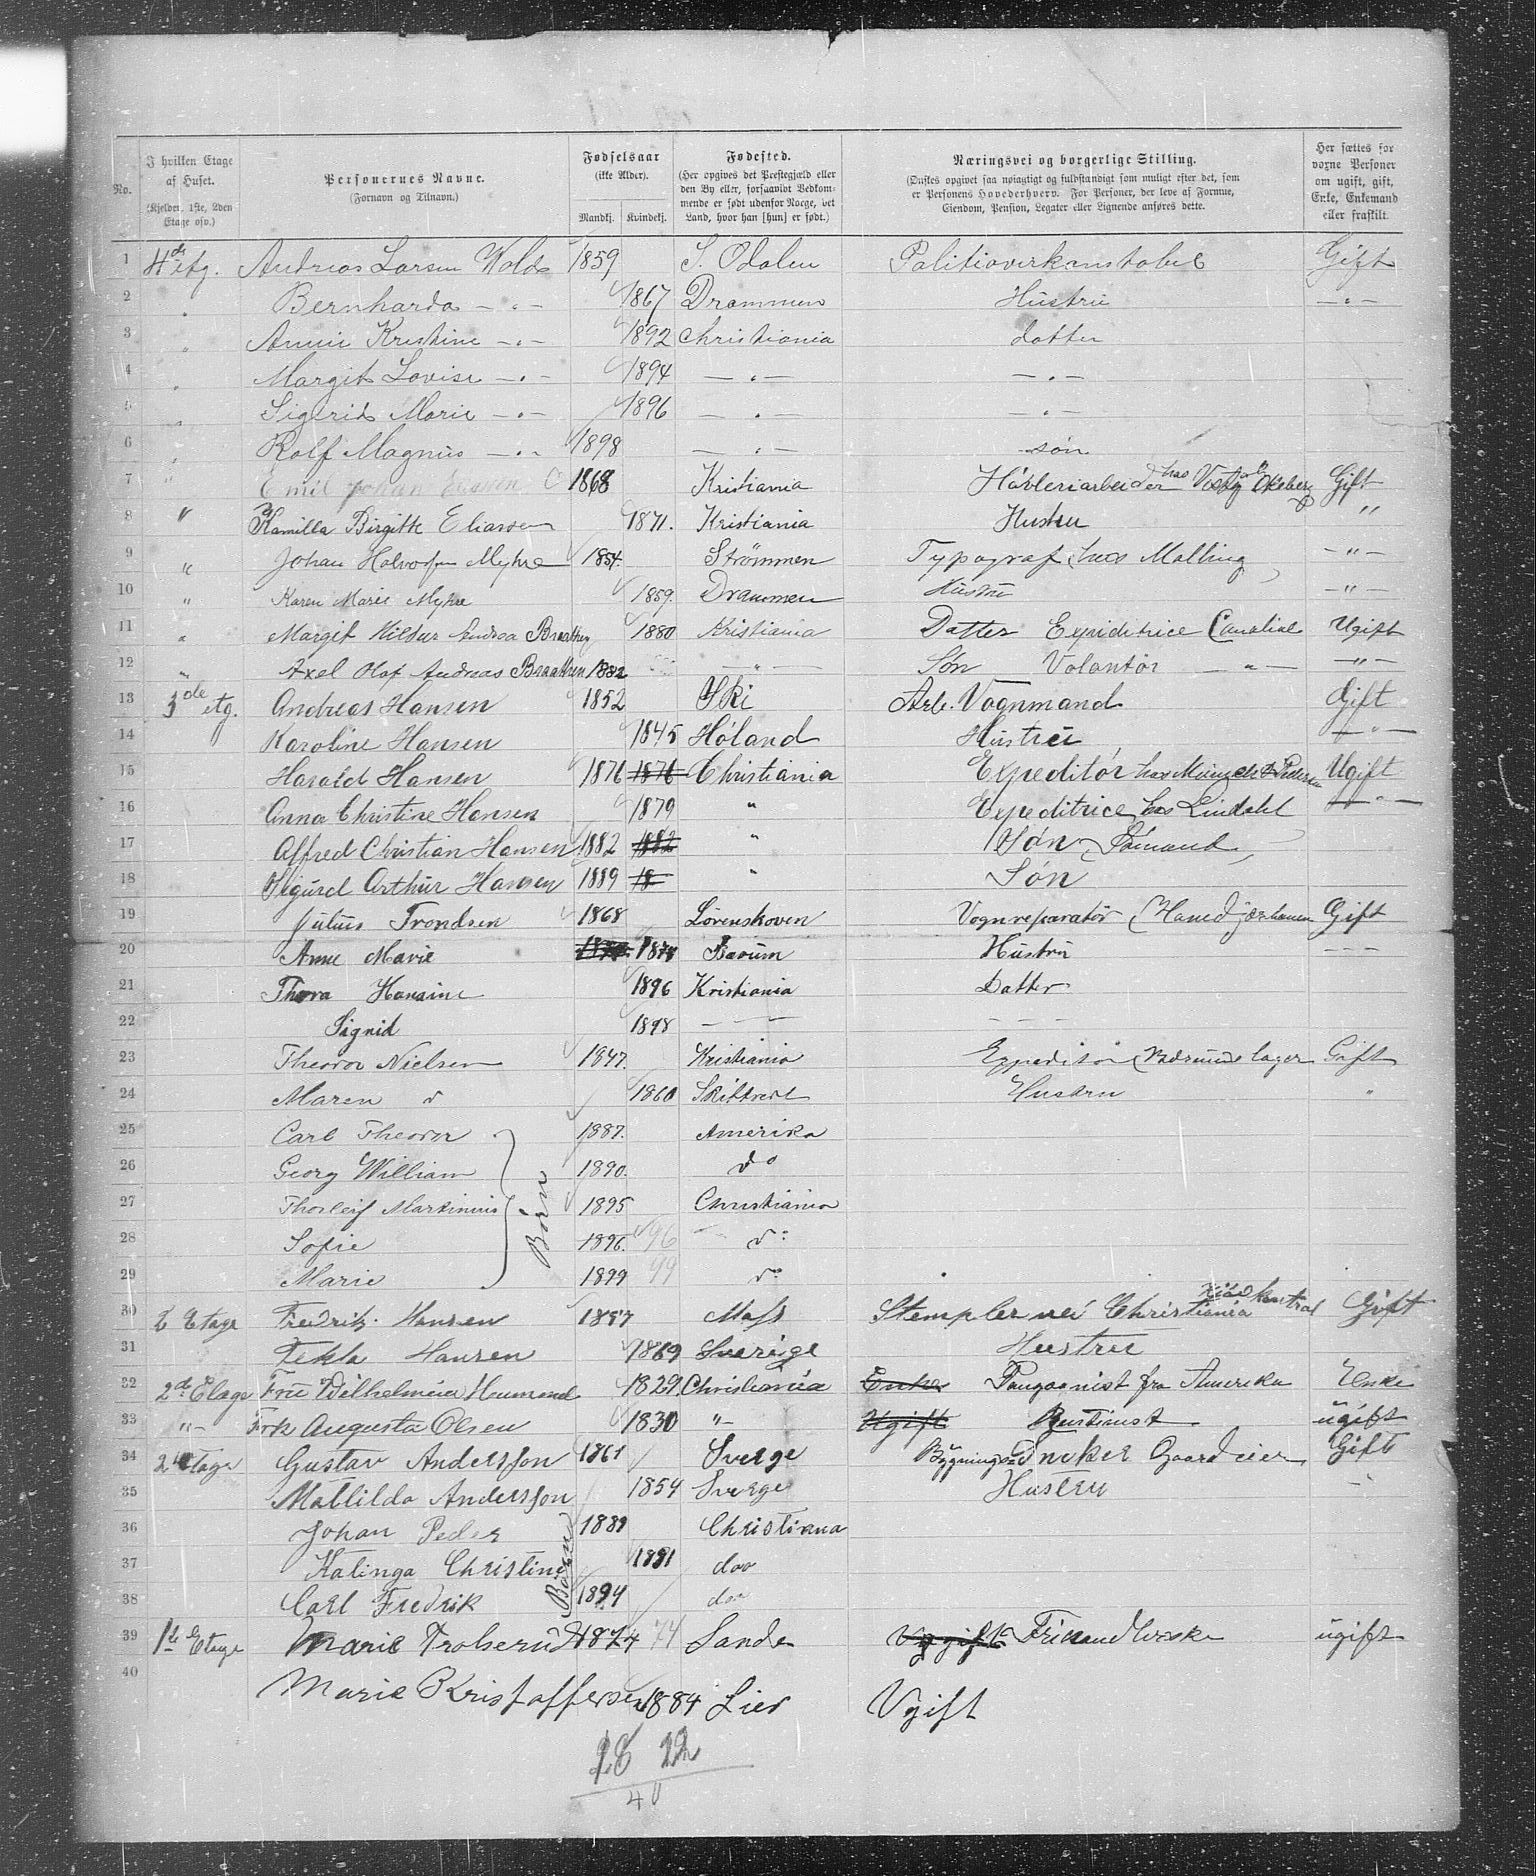 No.
I hvilken Etage af Huset. (Kjelder, 1ste, 2den Etage osv.)
Personernes Navne. (Fornavn og Tilnavn.)
Fødselsaar (ikke Alder). Mandkj. Kvindekj.
Fødested. (Her opgives det Prestegjæld eller den By eller, forsaavidt Vedkommende er født udenfor Norge, det Land, hvor han [hun] er født.)
Næringsvei og borgerlige Stilling. (Ønskes opgivet saa nøiagtigt og fuldstændigt som muligt efter det, som er Personens Hovederhverv. For Personer, der leve af Formue, Eiendom, Pension, Legater eller Lignende anføres dette.)
Her sættes for voxne Personer om ugift, gift, Enke, Enkemand eller fraskilt.
1 4de etg. Andreas Larsen Wold 1859 S. Odalen Politioverkonstabel Gift
2 " Bernharda -"- 1867 Drammen Hustru -"-
3 " Anni Kristine -"- 1892 Christiania datter
4 " Margit Lovise -"- 1894 -"- -"-
5 " Sigrid Marie -"- 1896 -"- -"-
6 " Rolf Magnus -"- 1898 -"- søn
7 " Emil Johan 1868 Kristiania Høvleriarbeider hos Gift
8 " Kamilla Birgitte Eliassen 1871. Kristiania Hustru "
9 " Johan Halvorsen Myhre 1854. Strömmen Typograf hos Malling -"-
10 " Karen Marie Myhre 1859. Drammen Hustru -"-
11 " Margit Hildur Andrea Braathen 1880 Kristiania Datter Expeditrice Ugift
12 " Axel Olaf Andreas Braathen 1882 -"- Søn Volontør -"- -"-
13 3de etg. Andreas Hansen 1852 Ski Arb. Vognmand Gift
14 Karoline Hansen 1845 Høland Hustru -"-
15 Harald Hansen 1876 1876 Christiania Expeditør hos Ugift
16 Anna Christine Hansen 1879 " Expeditrice hos Lindahl -"-
17 Alfred Christian Hansen 1882 1882 " Søn
18 Sigurd Arthur Hansen 1889 18 " Søn
19 Julius Trondsen 1868 Lørenskoven Vognreparatør Gift
20 Anne Marie Bærum Hustru - - -
21 Thora Hansine 1896 Kristiania Datter
22 Signid 1898 - - - - - -
23 Theodor Nielsen 1847. Kristiania Expeditør lager Gift
24 Maren d 1860 Skiptvedt Hustru "
25 Carl Theodor 1887. Amerika
26 Georg William 1890. do
27 Thorleif Martinius 1895 Christiania
Børn
28 Sofie 1896. 96 do
29 Marie 1899 99 do
30 2 Etage Fredrik Hansen Moss Stempler ved Christiania Gift
31 Tekla Hansen 1869 Sverige Hustru
32 2de Etage Fru Wilhelmine 1829 Christiania Enke fra Amerika Enke
33 "- Frk Augusta Olsen 1830 "- Ugift ugift
34 2 Etage Gustav Andersson 1861 Sverge Bygnings=Sneker Gaardeier Gift
35 Mathilda Andersson 1854 Sverge Hustru -
36 Johan Peder 1889 Christiana
37 Katinga Christine 1891 doo
Børn
38 Carl Fredrik 1894 doo
39 1ste Etage Marie 1874 74 Sande ugift
40 Marie Kristoffersen 1884 Lier Vgift
18 22
40